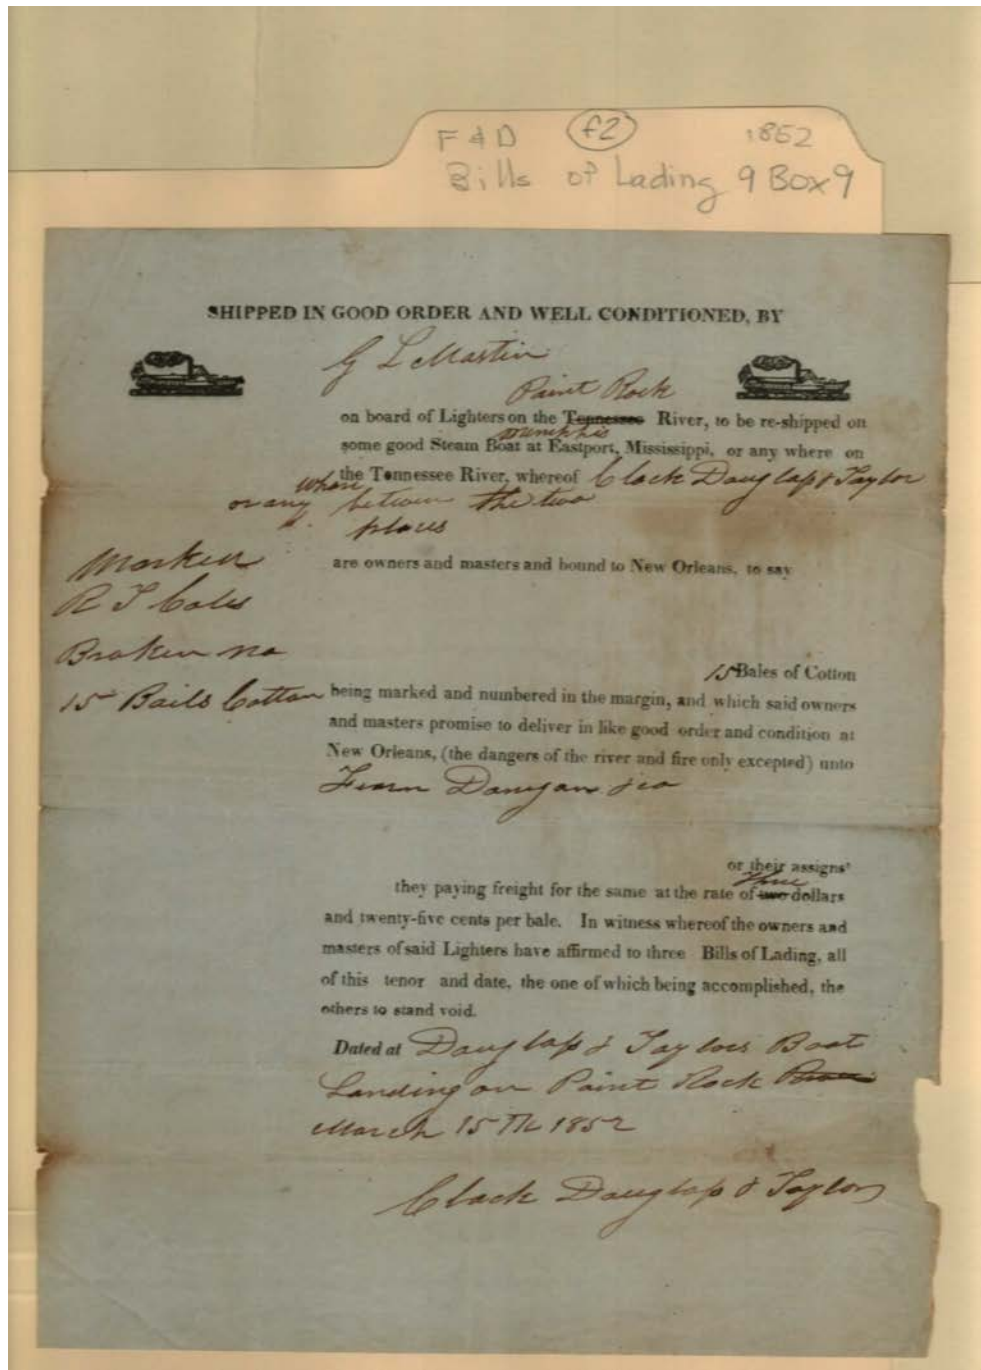 F & D (f2) 1852
Bills of Lading 9 Box 9
SHIPPED IN GOOD ORDER AND WELL CONDITIONED, BY
G L Martin
Paint Rock
on board of Lighters on the Tennessee River, to be re-shipped on
Memphis
some good Steam Boat at Eastport, Mississippi, or any where on
the Tennessee River, whereof Clack Douglass & Taylor
or any where between the two
places
are owners and masters and bound to New Orleans, to say
Marked
R T Coles
Broken no
15 Bales of Cotton
15 Bails Cotton
being marked and numbered in the margin, and which said owners
and masters promise to deliver in like good order and condition at
New Orleans, (the dangers of the river and fire only excepted) unto
Fearn Donegan & co
or their assigns'
three
they paying freight for the same at the rate of two dollars
and twenty-five cents per bale. In witness whereof the owners and
masters of said Lighters have affirmed to three Bills of Lading, all
of this tenor and date, the one of which being accomplished, the
others to stand void.
Dated at Douglass & Taylors Boat
Landing on Paint Rock
March 15Th 1852
Clack Douglass & Taylor